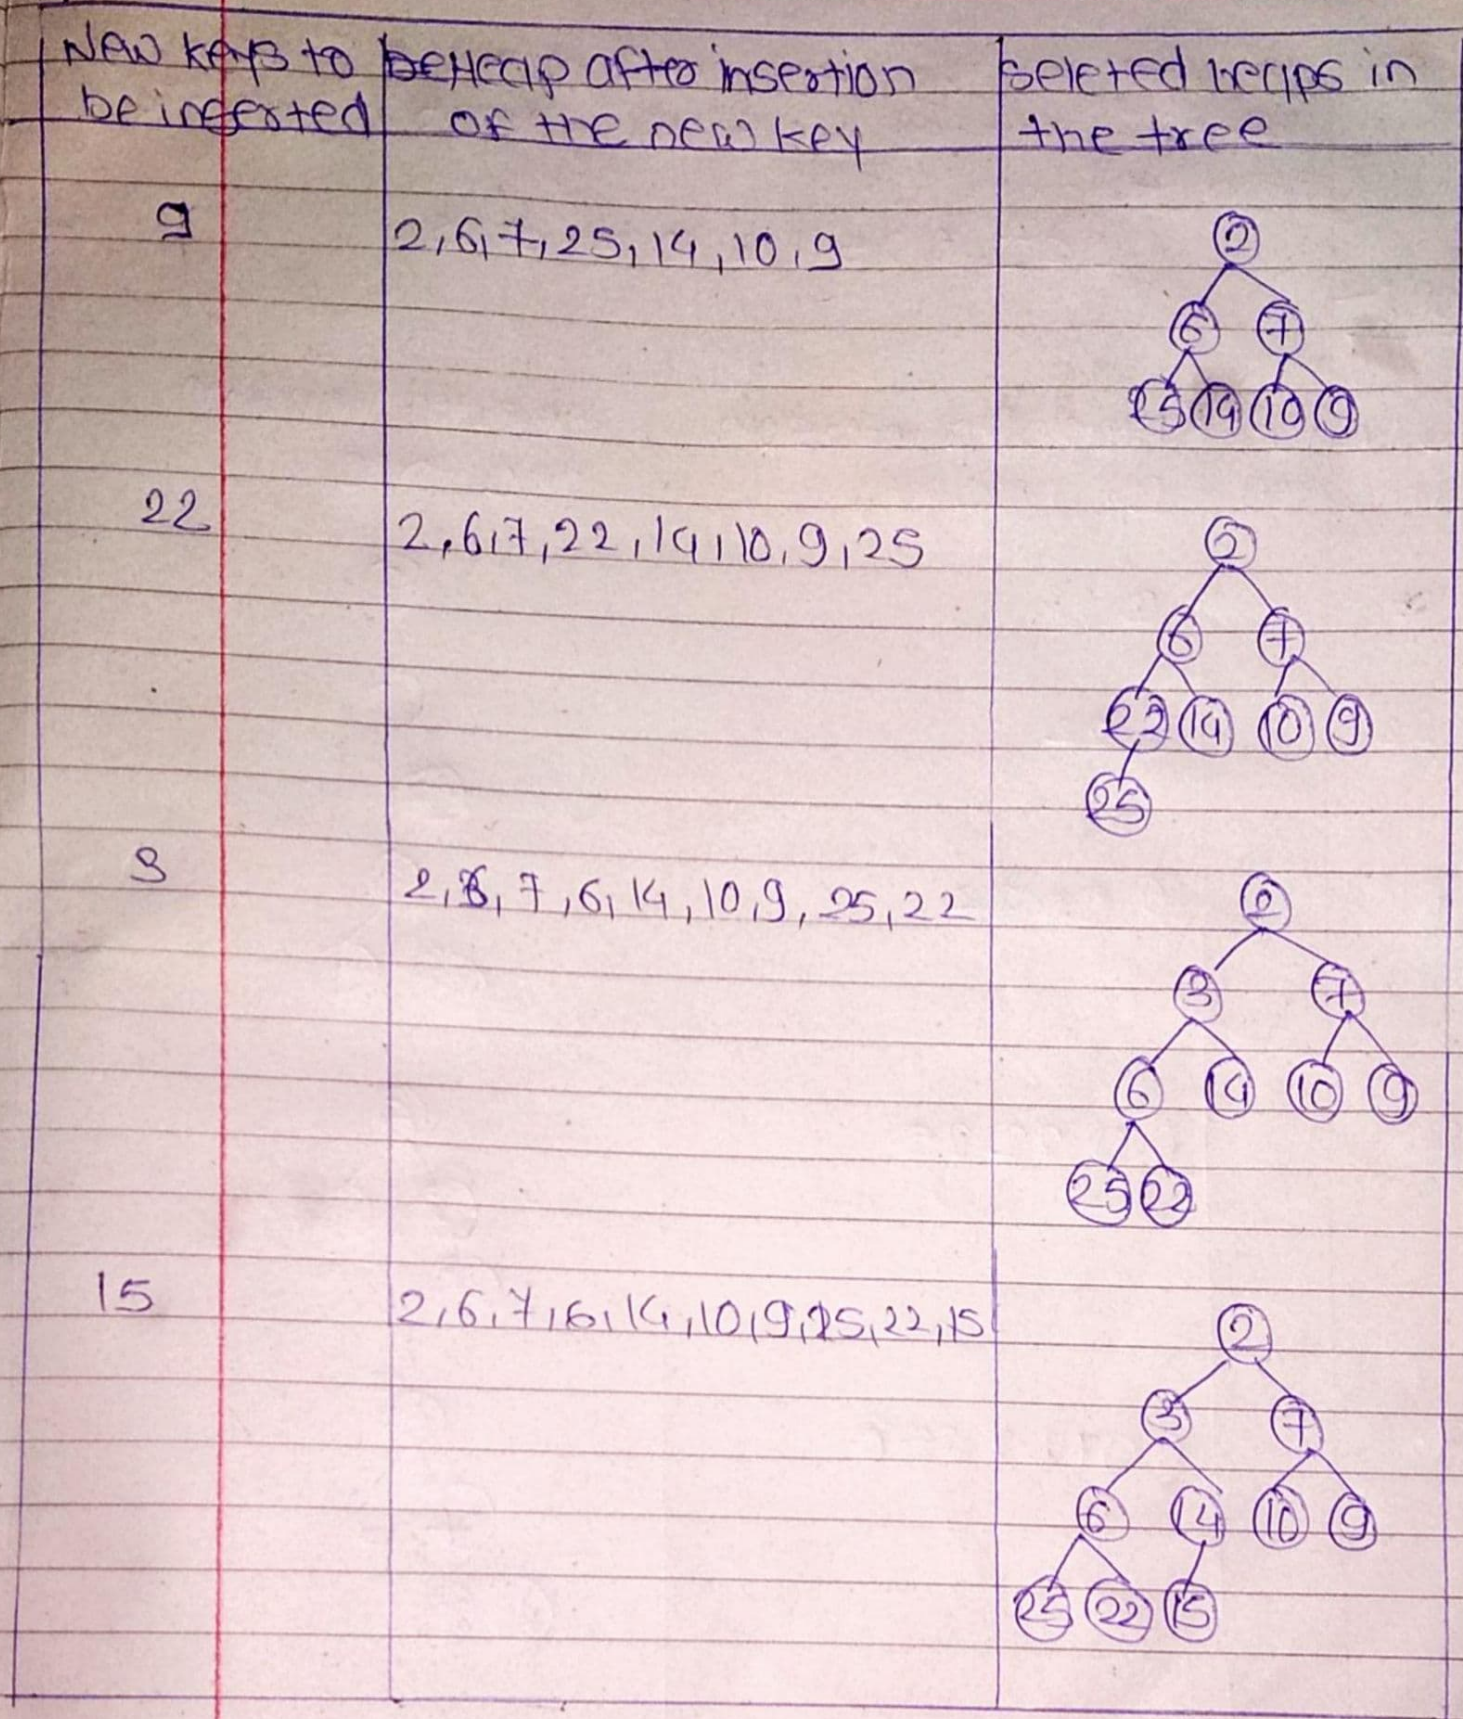 New keys to be inserted
be Heap after insertion of the new key
seleted heaps in the tree
9
2,6,7,25,14,10,9
2
6 7
25 14 10 9
22
2,6,7,22,14,10,9,25
2
6 7
22 14 10 9
25
3
2,3,7,6,14,10,9,25,22
2
3 7
6 14 10 9
25 22
15
2,6,7,6,14,10,9,25,22,15
2
3 7
6 14 10 9
25 22 15